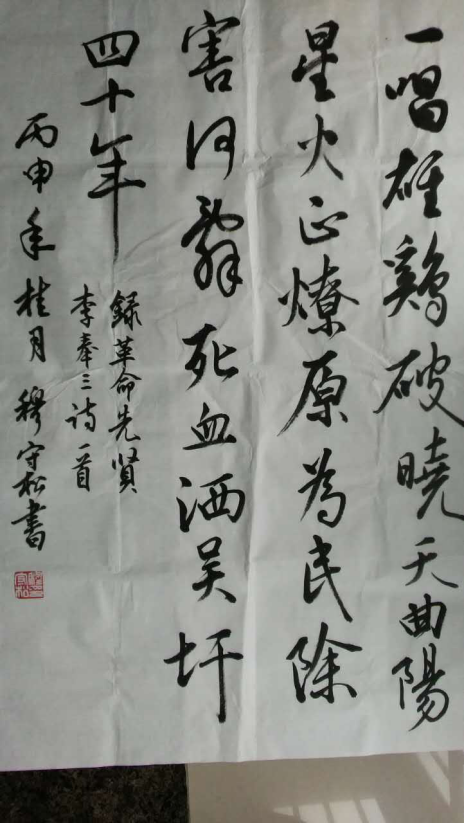 一唱雄鷄破曉天曲陽
星火正燎原為民除
害何辭死血洒吴圩
四十年
錄革命先賢
李奉三诗一首
丙申年桂月穆守松書